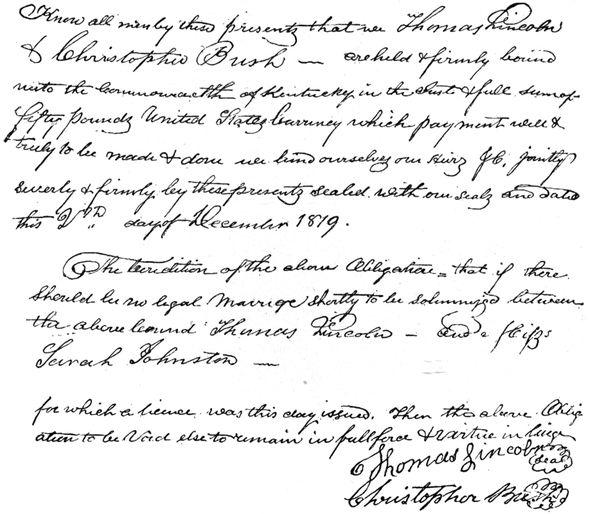 Know all men by these presents that we Thomas Lincoln
& Christopher Bush — are held & firmly bound
unto the Commonwealth of Kentucky in the Just & full sum of
fifty pounds United States Currency which payment will &
truly to be made & done we bind ourselves our Heirz &C, jointly
severly & firmly by these presents sealed with our sealz and date
this 2nd day of December 1819.
The Condition of the above Obligation = that if there
should be no legal Marrige shortly to be solemnized between
the above bound Thomas Lincoln — and
Sarah Johnston —
for which a licence was this day issued. Then the above Oblig
ation to be Void else to remain in full force & virtue in
Thomas Lincoln seal
Christopher Bush